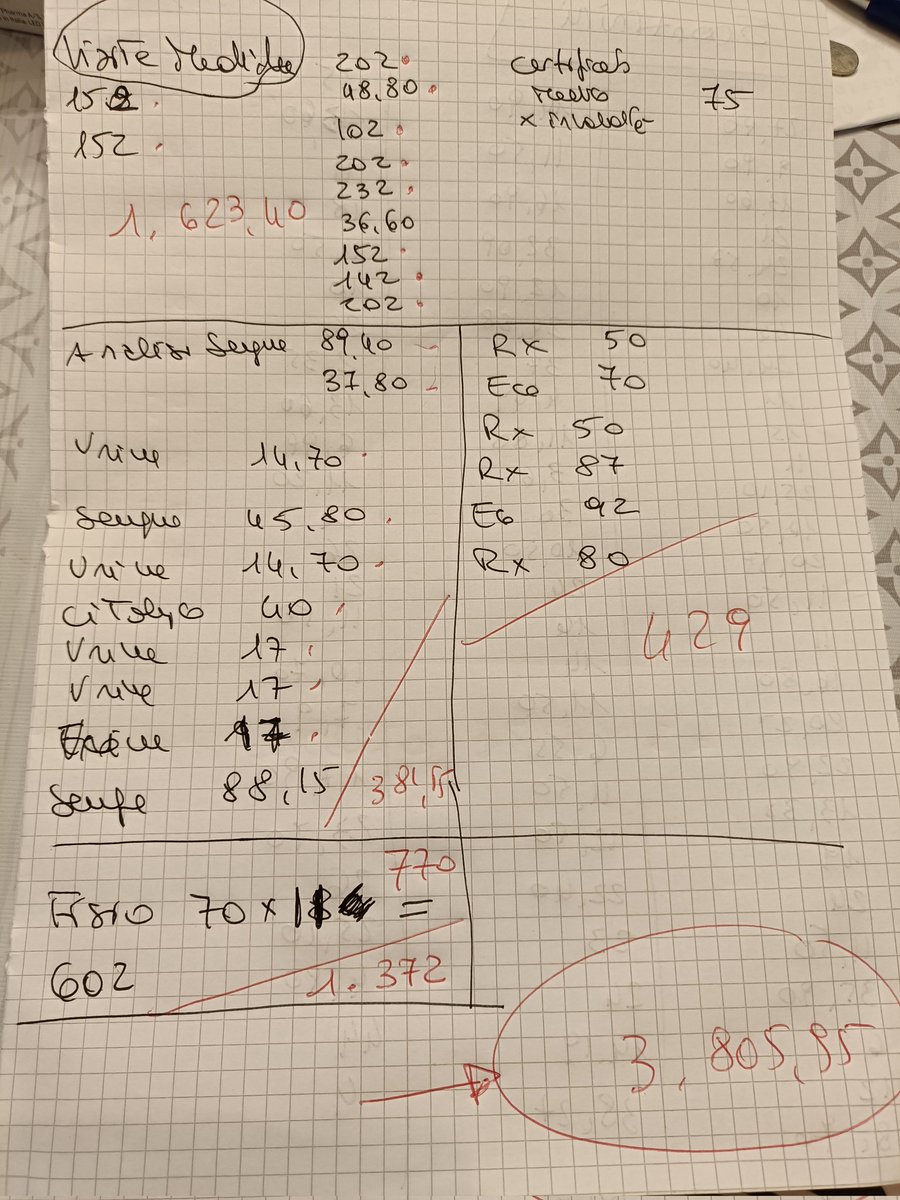 Visite Mediche
152
152
1.623,40
202
48,80
102
202
232
36,60
152
142
202
certificato
medico
x invalidità
75
Analisi Sangue 89,40
37,80
Urine 14,70
Sangue 45,80
Urine 14,70
Citologico 40
Urine 17
Urine 17
Urine 17
Sangue 88,15
381,55
Rx 50
Eco 70
Rx 50
Rx 87
Eco 92
Rx 80
429
770
Fisio 70 x 11 =
602
1.372
3.805,95